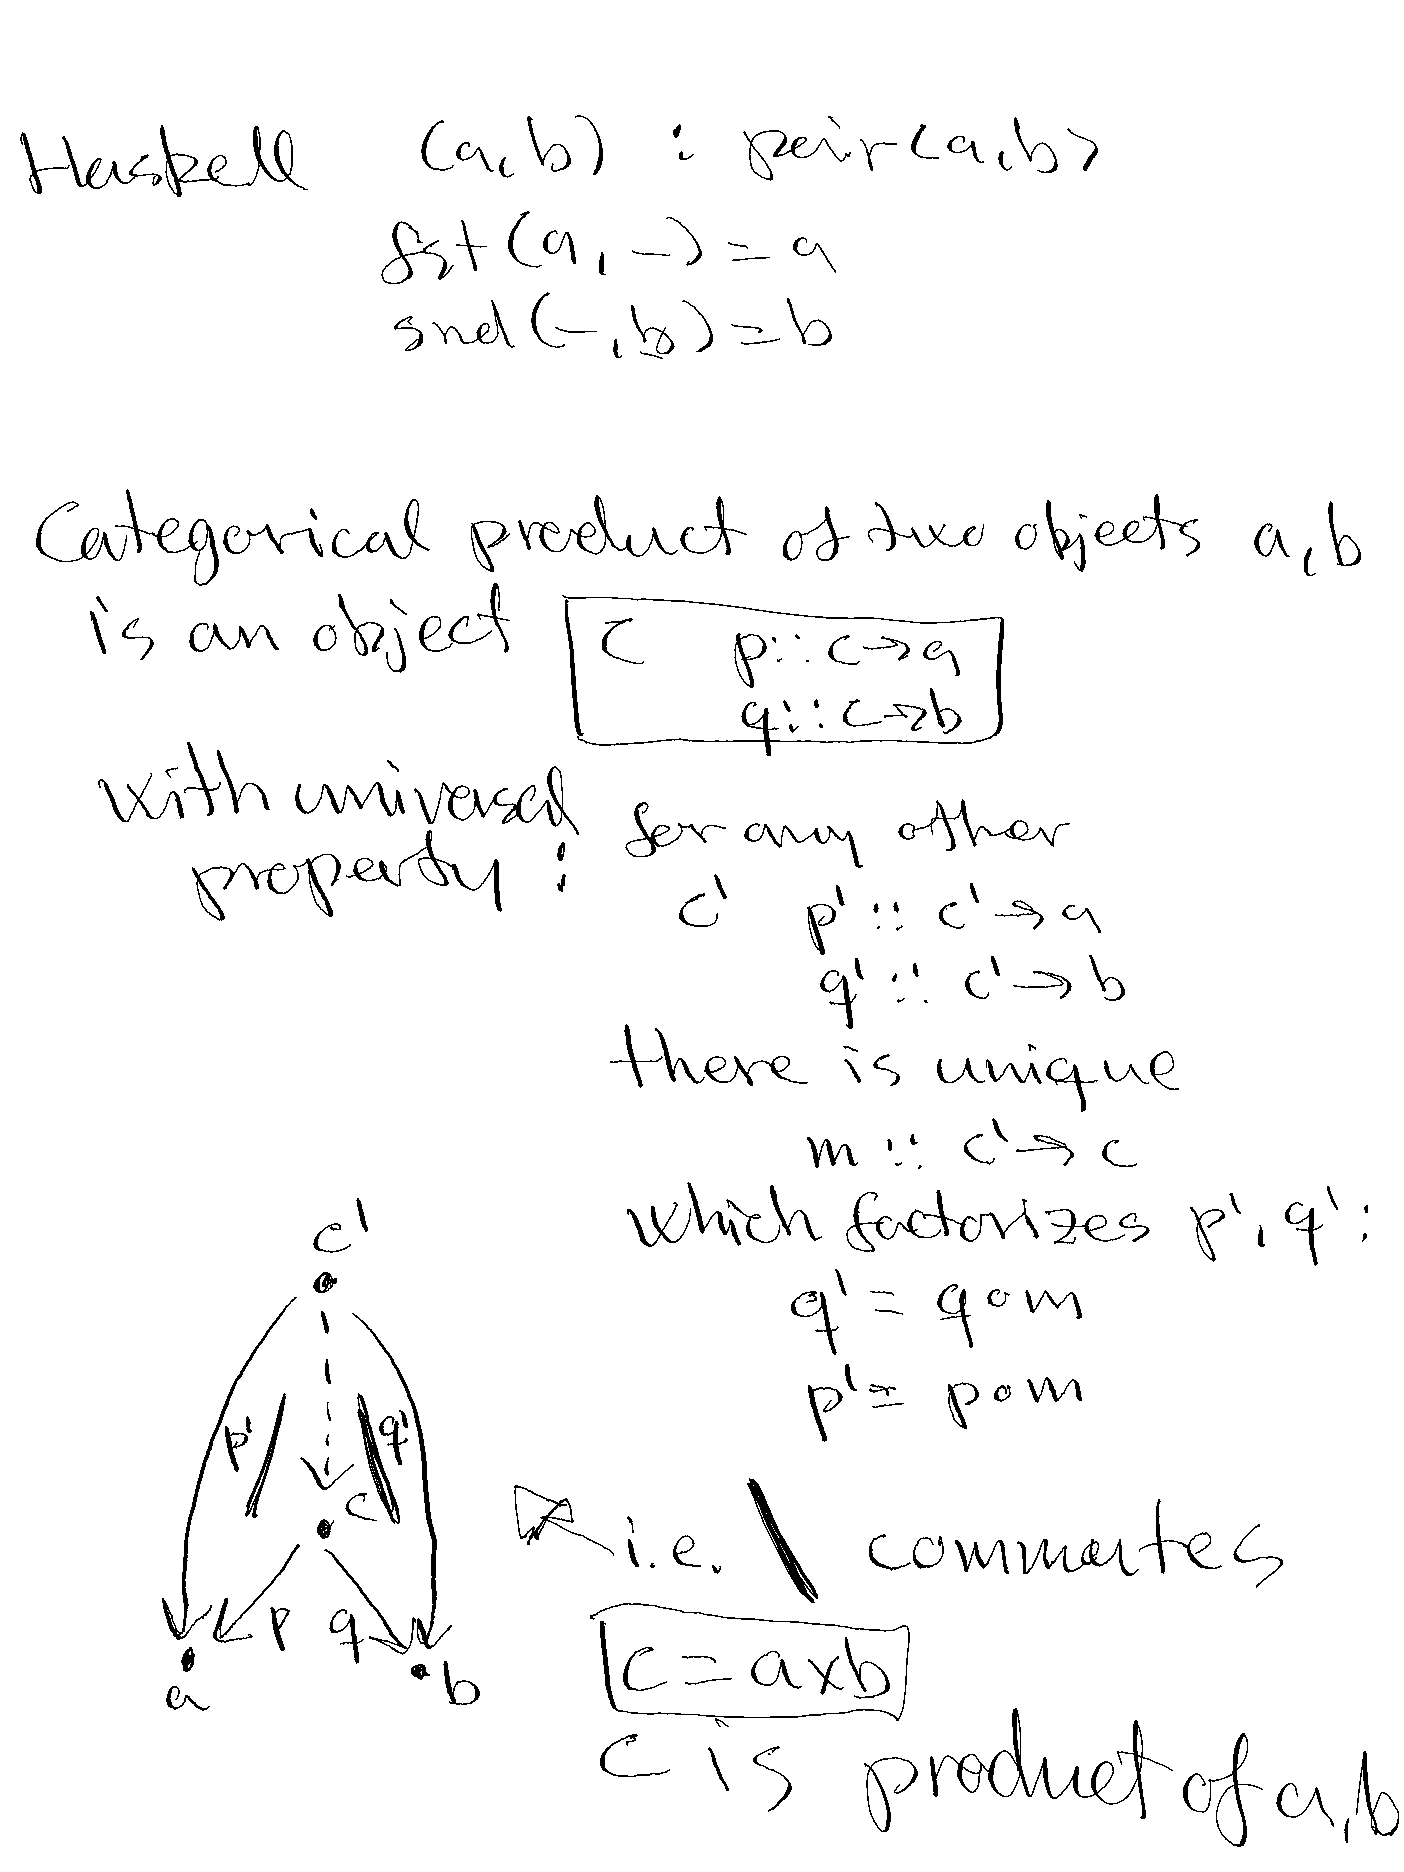 Haskell (a,b) : pair<a,b>
fst(a,_)=a
snd(_,b)=b
Categorical product of two objects a,b
is an object c p::c→a
q::c→b
with universal
property : for any other
c' p'::c'→a
q'::c'→b
there is unique
m::c'→c
which factorizes p',q':
q'=q∘m
p'=p∘m
c'
p' q'
c
p q
a b
i.e. \ commutes
c=a×b
c is product of a,b